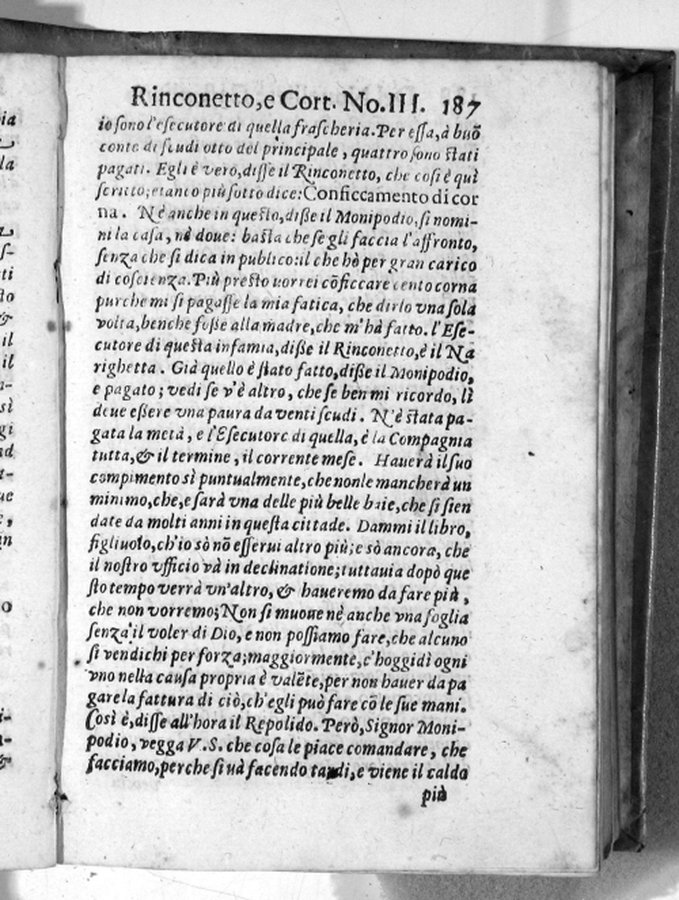 Rinconetto, e Cort. No. III. 187
io sono l'esecutore di quella frascheria. Per essa, à buõ
conto di scudi otto del principale, quattro sono stati
pagati. Egli è vero, disse il Rinconetto, che così è quì
scritto; et anco più sotto dice: Conficcamento di cor
na. Nè anche in questo, disse il Monipodio, si nomi-
ni la casa, nè doue: basta che se gli faccia l'affronto,
senza che si dica in publico: il che hò per gran carico
di coscienza. Più presto vorrei cõficcare cento corna
purche mi si pagasse la mia fatica, che dirlo vna sola
volta, benche fosse alla madre, che m'hà fatto. l'Ese-
cutore di questa infamia, disse il Rinconetto, è il Na
righetta. Già quello è stato fatto, disse il Monipodio,
e pagato; vedi se v'è altro, che se ben mi ricordo, lì
deue essere vna paura da venti scudi. N'è stata pa-
gata la metà, e l'Esecutore di quella, è la Compagnia
tutta, & il termine, il corrente mese. Hauerà il suo
compimento sì puntualmente, che non le mancherà un
minimo, che, e sarà vna delle più belle baie, che si sien
date da molti anni in questa cittade. Dammi il libro,
figliuolo, ch'io sò nõ esserui altro più; e sò ancora, che
il nostro vfficio và in declinatione; tuttauia dopò que
sto tempo verrà vn'altro, & haueremo da fare più,
che non vorremo; Non si muoue nè anche vna foglia
senza il voler di Dio, e non possiamo fare, che alcuno
si vendichi per forza; maggiormente, c'hoggidì ogni
vno nella causa propria è valẽte, per non hauer da pa
gare la fattura di ciò, ch'egli può fare cõ le sue mani.
Così è, disse all'hora il Repolido. Però, Signor Moni-
podio, vegga V.S. che cosa le piace comandare, che
facciamo, perche si và facendo tardi, e viene il caldo
più